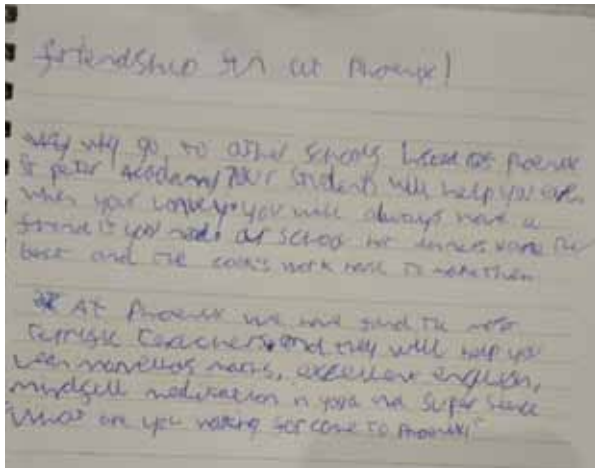 friendship fun at Phoenix!
why why go to other schools because Phoenix
St peter Academy your students will help you even
when your lonley. you will always have a
friend if you need. our school dinners are the
best and the cooks work hard to make them
At Phoenix we have the most
terrific teachers. and they will help you
learn marvellous maths, excellent english,
mindfull meditation n yoga and super science
what are you waiting for come to Phoenix!"